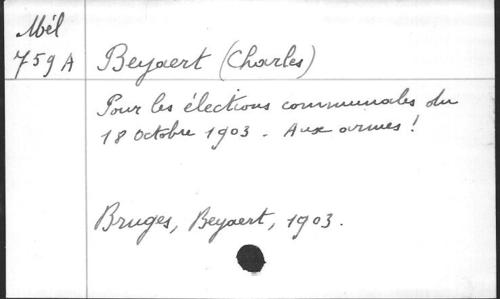 Mél
759 A
Beyaert (Charles)
Pour les élections communales du
18 Octobre 1903. Aux armes !
Bruges, Beyaert, 1903.